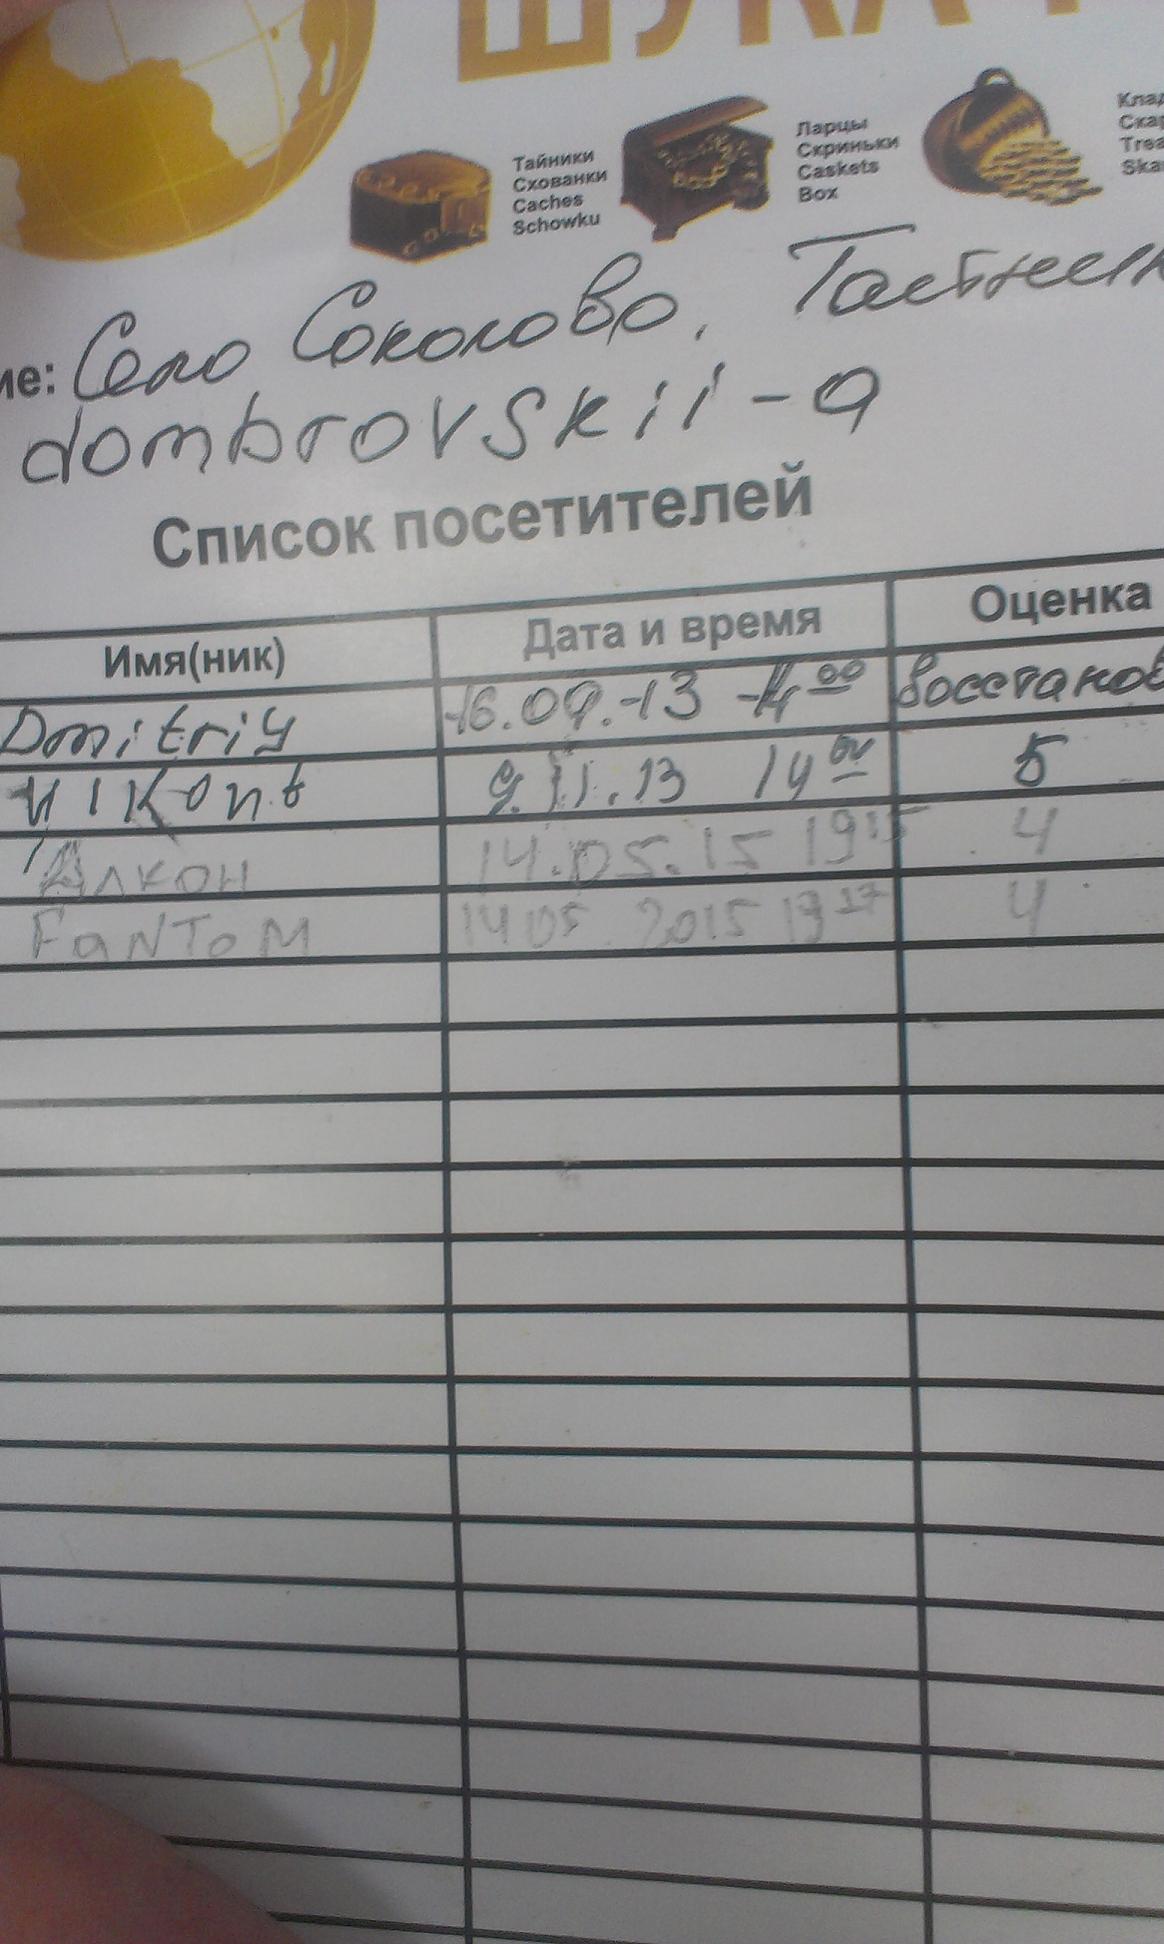 ШУКА
Тайники
Схованки
Caches
Schowku
Ларцы
Скриньки
Caskets
Box
Село Соколово,
dombrovskii-a
Список посетителей
Имя(ник) Дата и время Оценка
Dmitriy 16.09.13 14 00
VIKont 9.11.13 14 00 5
Алкон 14.05.15 19 15 4
FaNToM 14 05 2015 19 17 4